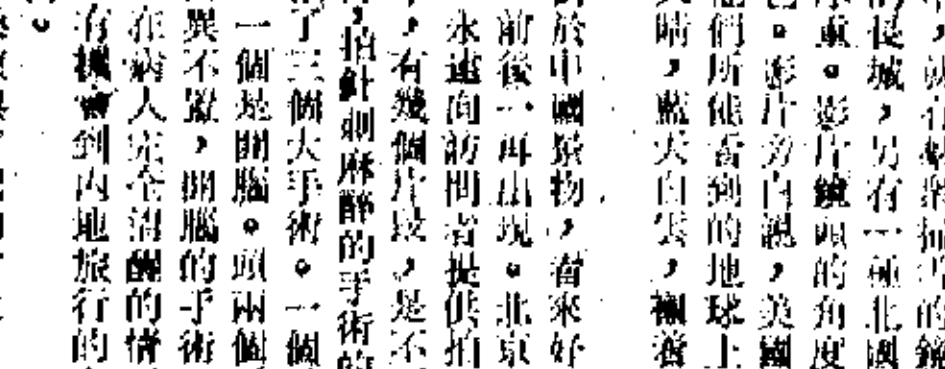 的長城，另有一種北國
重。影片鏡頭的角度
。影片旁白說，美國
他們所能看到的地球上
晴，藍天白雲，襯着
於中國景物，看來好
前後一再出現。北京
永遠向訪問者提供拍
，有幾個片段，是不
，拍針刺麻醉的手術的
了三個大手術。一個
一個是開腦。頭兩個
異不置，開腦的手術
在病人完全清醒的情
有機會到內地旅行的
。